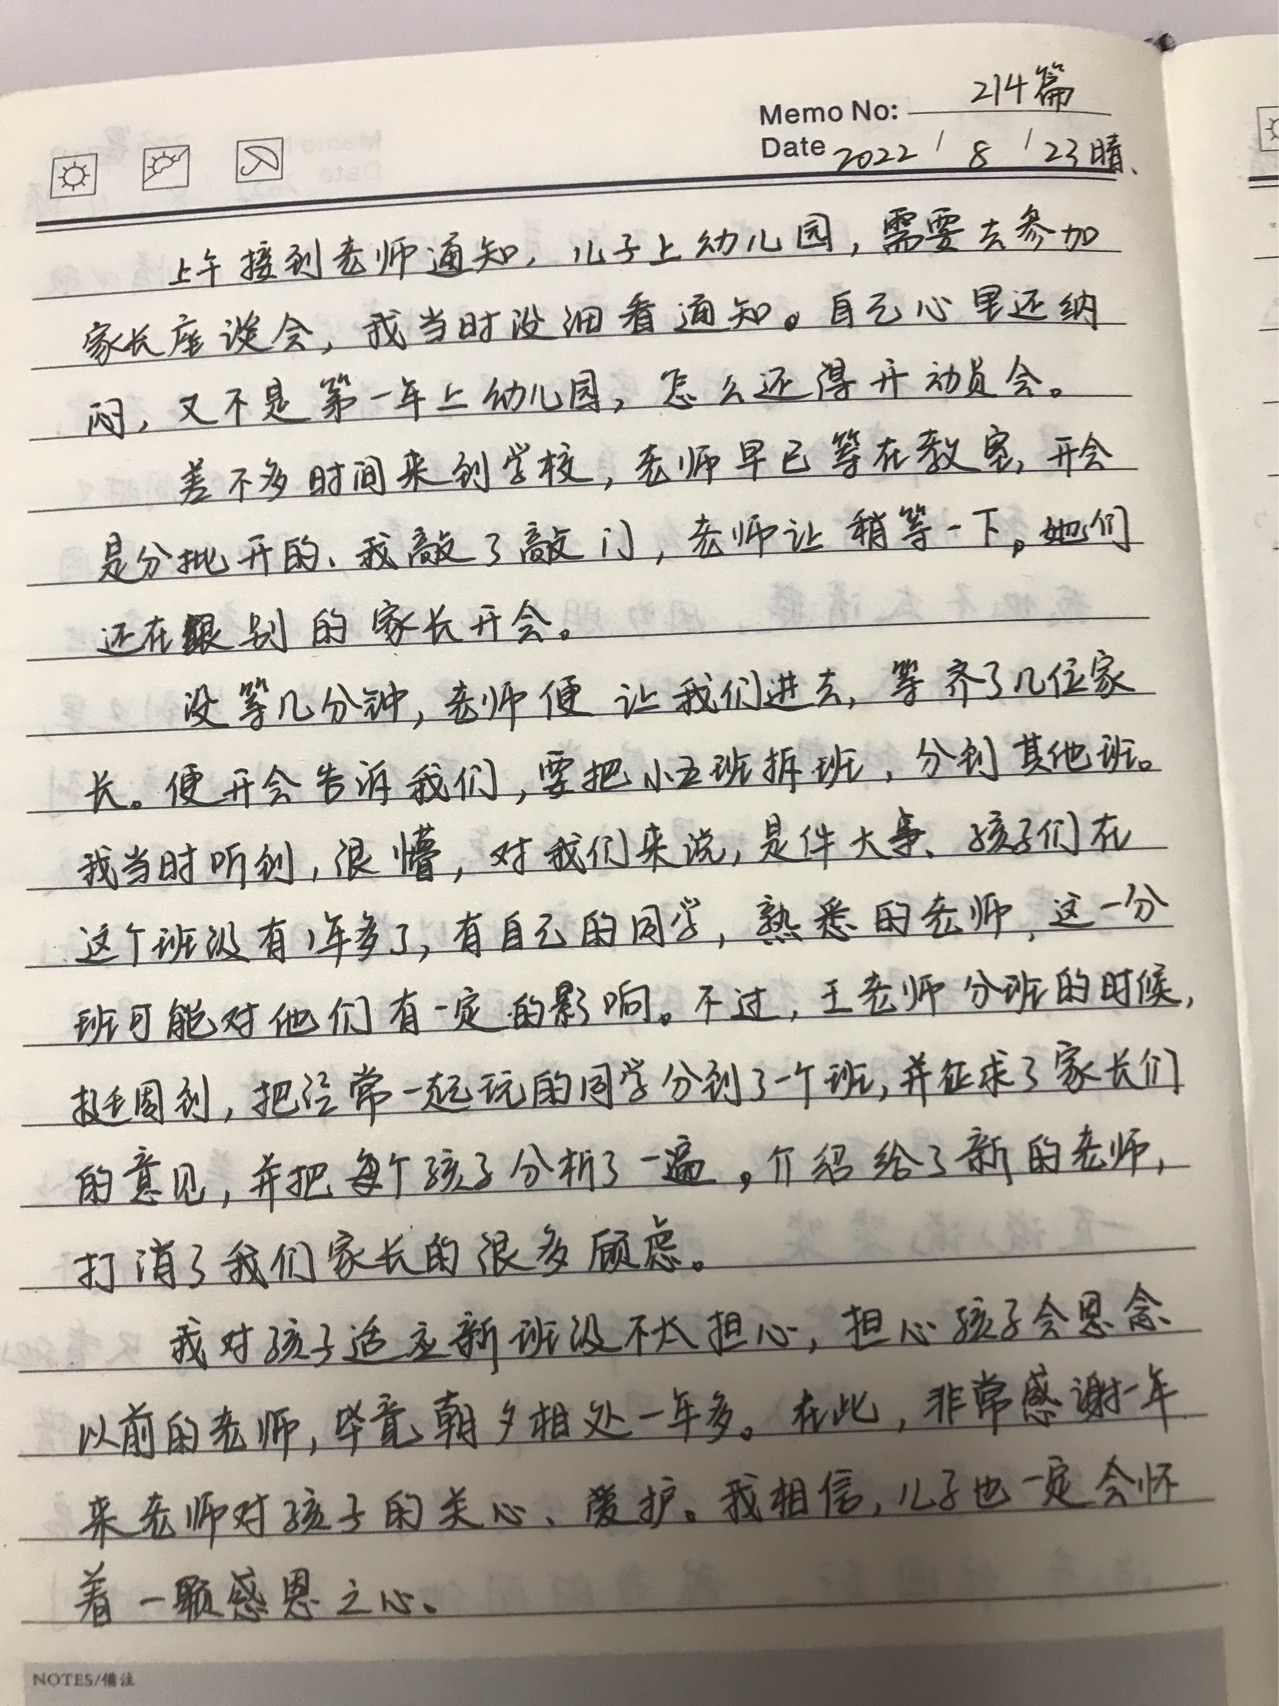 Memo No: 214篇
Date 2022 / 8 / 23 晴、
上午接到老师通知，儿子上幼儿园，需要去参加
家长座谈会，我当时没细看通知。自己心里还纳
闷，又不是第一年上幼儿园，怎么还得开动员会。
差不多时间来到学校，老师早已等在教室，开会
是分批开的、我敲了敲门，老师让稍等一下。她们
还在跟别的家长开会。
没等几分钟，老师便让我们进去，等齐了几位家
长。便开会告诉我们，要把小五班拆班，分到其他班。
我当时听到，很懵，对我们来说，是件大事、孩子们在
这个班级有1年多了，有自己的同学，熟悉的老师，这一分
班可能对他们有一定的影响。不过，王老师分班的时候，
挺周到，把经常一起玩的同学分到了一个班，并征求了家长们
的意见，并把每个孩子分析了一遍。介绍给了新的老师，
打消了我们家长的很多顾虑。
我对孩子适应新班级不太担心，担心孩子会思念
以前的老师，毕竟朝夕相处一年多。在此，非常感谢一年
来老师对孩子的关心、爱护。我相信，儿子也一定会怀
着一颗感恩之心。
NOTES/備注